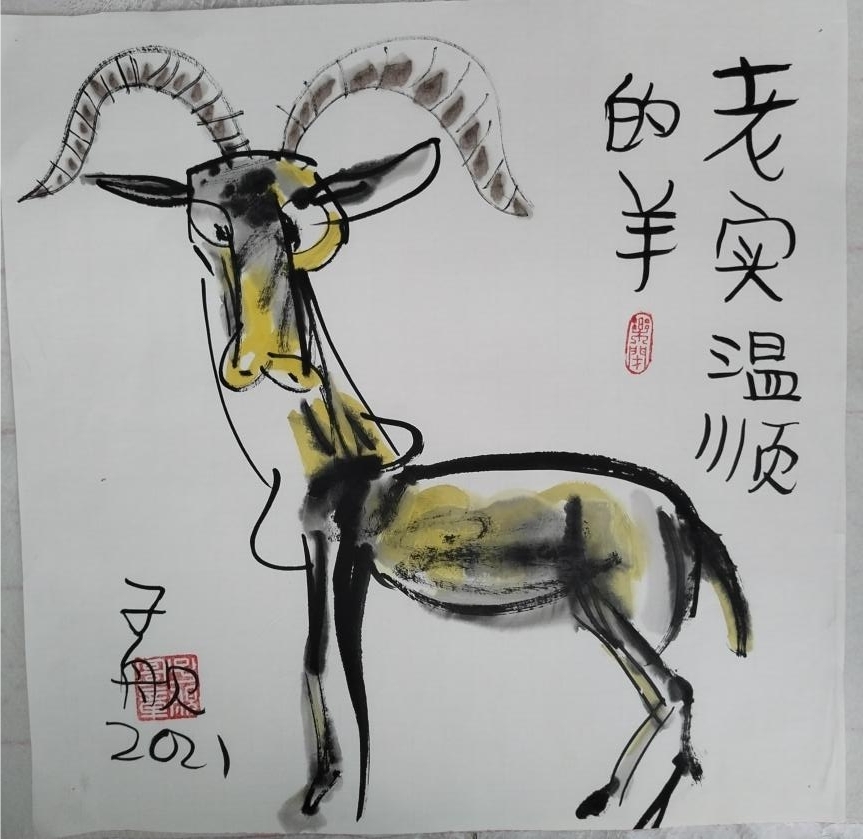 老实温顺
的羊
子
2021